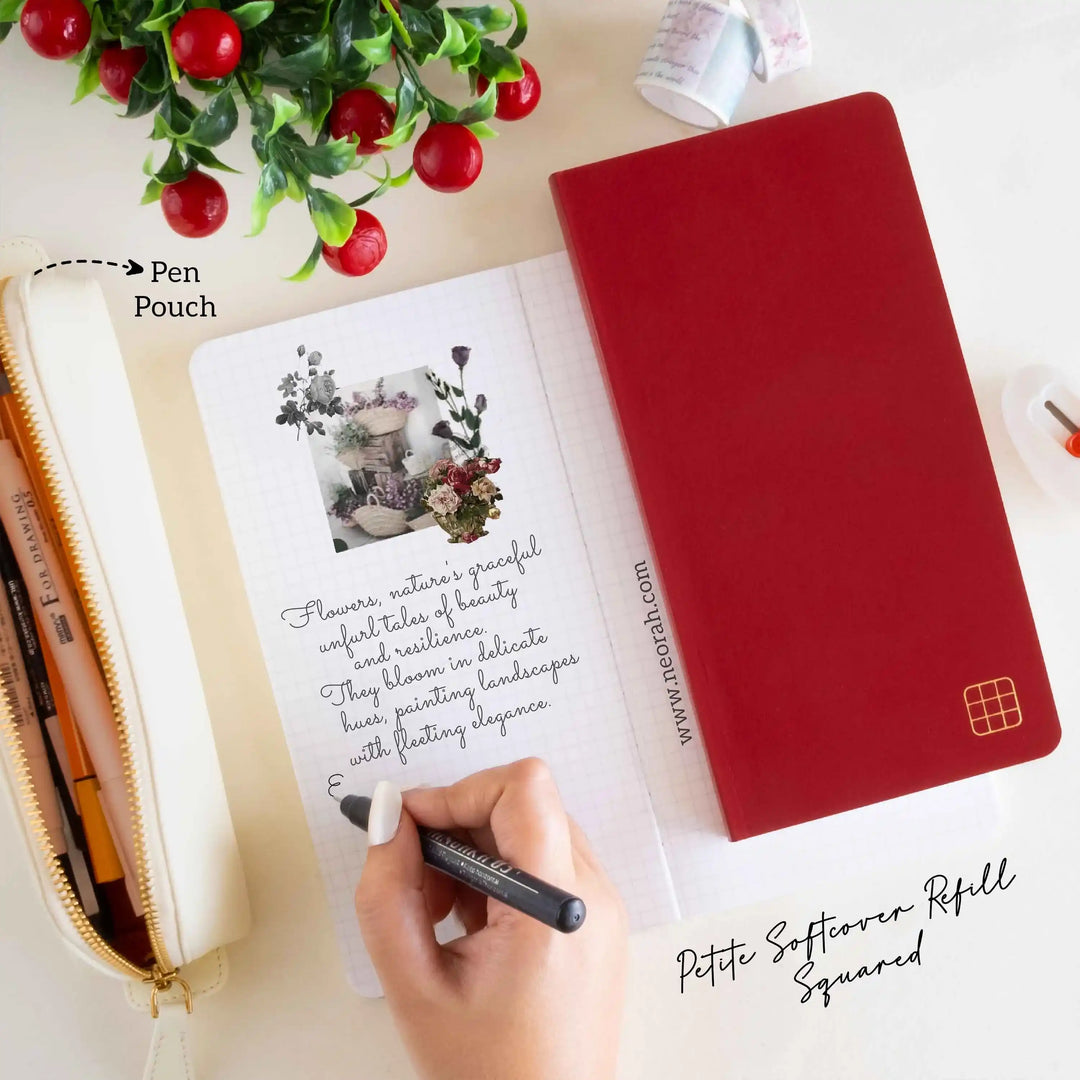 Pen
Pouch
FOR DRAWING
0.5
Flowers, nature's graceful
unfurl tales of beauty
and resilience.
They bloom in delicate
hues, painting landscapes
with fleeting elegance.
E
www.neorah.com
Petite Softcover Refill
Squared